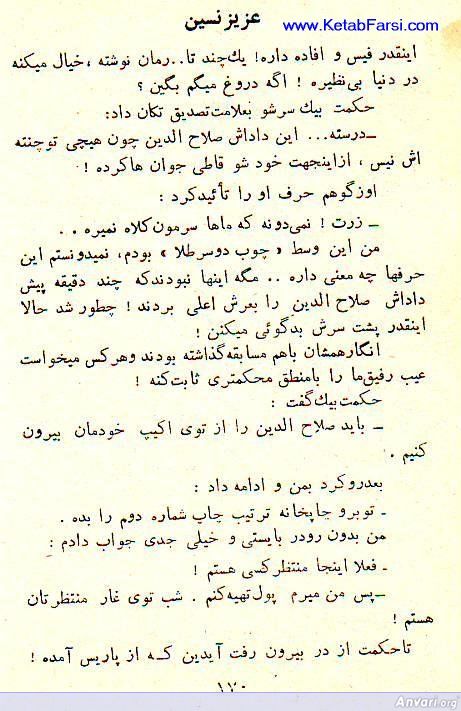 عزیز نسین
www.KetabFarsi.com
اینقدر فیس و افاده داره! یك چند تا.. رمان نوشته ، خیال میکنه
در دنیا بی‌نظیره ! اگه دروغ میگم بگین ؟
حکمت بیك سرشو بعلامت تصدیق تکان داد:
ــ درسته... این داداش صلاح الدین چون هیچی تو چنته
اش نیس ، از اینجهت خود شو قاطی جوان ها کرده !
اوزگوهم حرف او را تأئید کرد :
ــ زرت ! نمی‌دونه که ماها سرمون کلاه نمیره . .
من این وسط « چوب دوسر طلا » بودم، نمیدونستم این
حرفها چه معنی داره .. مگه اینها نبودند که چند دقیقه پیش
داداش صلاح الدین را بعرش اعلی بردند ! چطور شد حالا
اینقدر پشت سرش بدگوئی میکنن !
انگار همشان باهم مسابقه گذاشته بودند و هرکس میخواست
عیب رفیق‌ما را بامنطق محکمتری ثابت کنه !
حکمت بیك گفت :
ــ باید صلاح الدین را از توی اکیپ خودمان بیرون
کنیم .
بعد رو کرد بمن و ادامه داد :
ـ تو برو چاپخانه ترتیب چاپ شماره دوم را بده .
من بدون رودر بایستی و خیلی جدی جواب دادم :
ـ فعلا اینجا منتظر کسی هستم !
ــ پس من میرم پول تهیه کنم . شب توی غار منتظر تان
هستم !
تا حکمت از در بیرون رفت آیدین کـه از پاریس آمده !
۱۷۰
Anvari.org